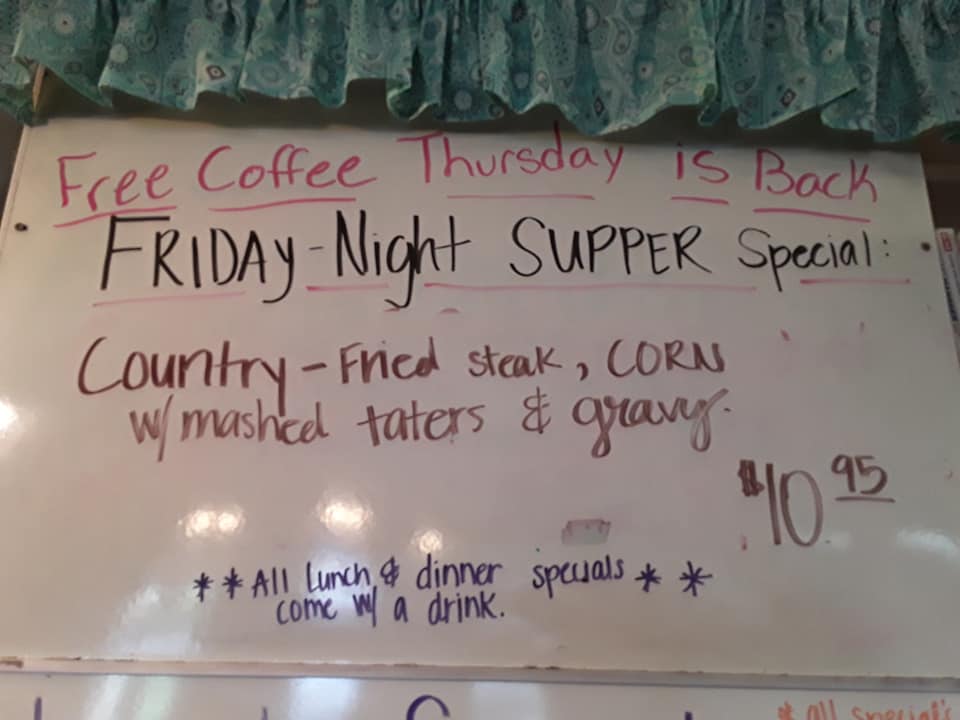 Free Coffee Thursday is Back
FRIDAY-Night SUPPER Special:
Country-Fried steak, CORN
w/ mashed taters & gravy.
$10.95
**All lunch & dinner specials**
come w/ a drink.
* all special's